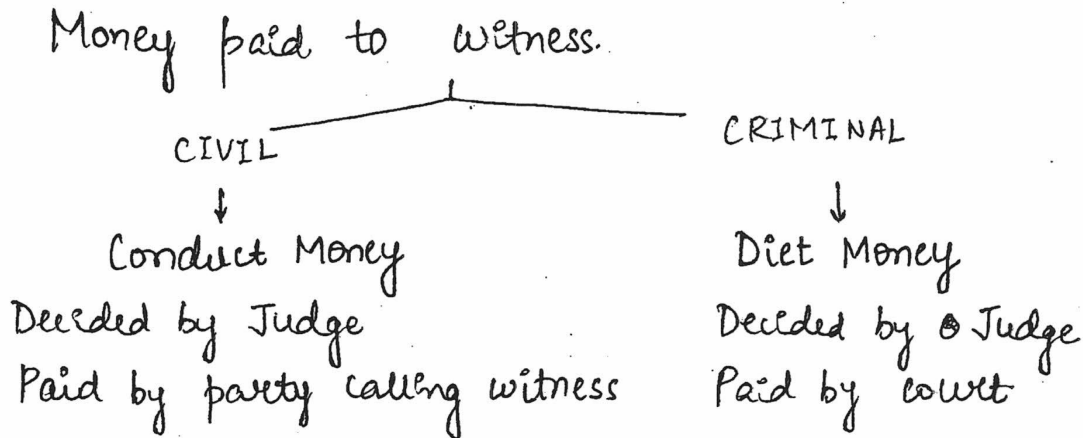 Money paid to witness.
CIVIL
CRIMINAL
↓
↓
Conduct Money
Decided by Judge
Paid by party calling witness
Diet Money
Decided by Judge
Paid by court